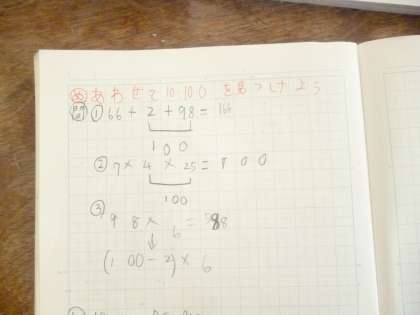 め あわせて10.100 を見つけよう
問 ① 66 + 2 + 98 = 166
100
② 7 × 4 × 25 = 700
100
③
98 × 6 = 588
↓
(100 - 2) × 6